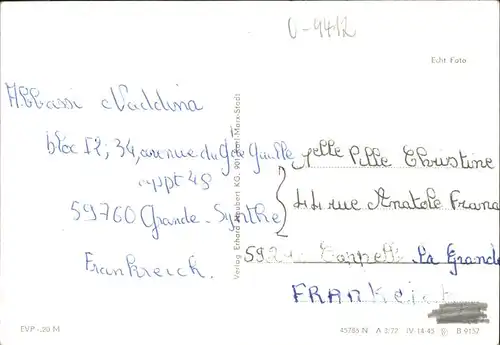 U-9412
Echt Foto
Abbassi Naddina
bloc 12; 34, avenue du G de Gaulle
appt 48
59760 Grande-Synthe
Frankreich.
Melle Pille Christine
44 rue Anatole Franc
Cappelle La Grande
FRANKEICH
Verlag Erhard Neubert KG, Karl-Marx-Stadt
EVP -,20 M
45785 N A 2/72 IV-14-45 B 9157